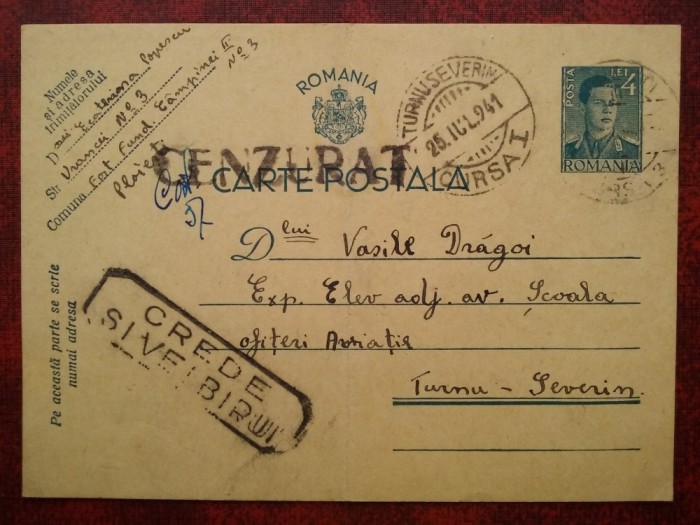 Numele
și adresa
trimițătorului
D nei Ecaterina Popescu
Str. Vrancei No 3
Comuna Fund. Câmpinei II
No 3
Ploiești
ROMANIA
CENZURAT
CARTE POSTALA
TURNU-SEVERIN
25.IUL.941
CURSA I
POSTA
LEI 4
ROMANIA
D lui Vasile Drăgoi
Exp. Elev adj. av. Școala
ofițeri Aviație
Turnu-Severin
CREDE
SI VEI BIRUI
Pe această parte se scrie
numai adresa